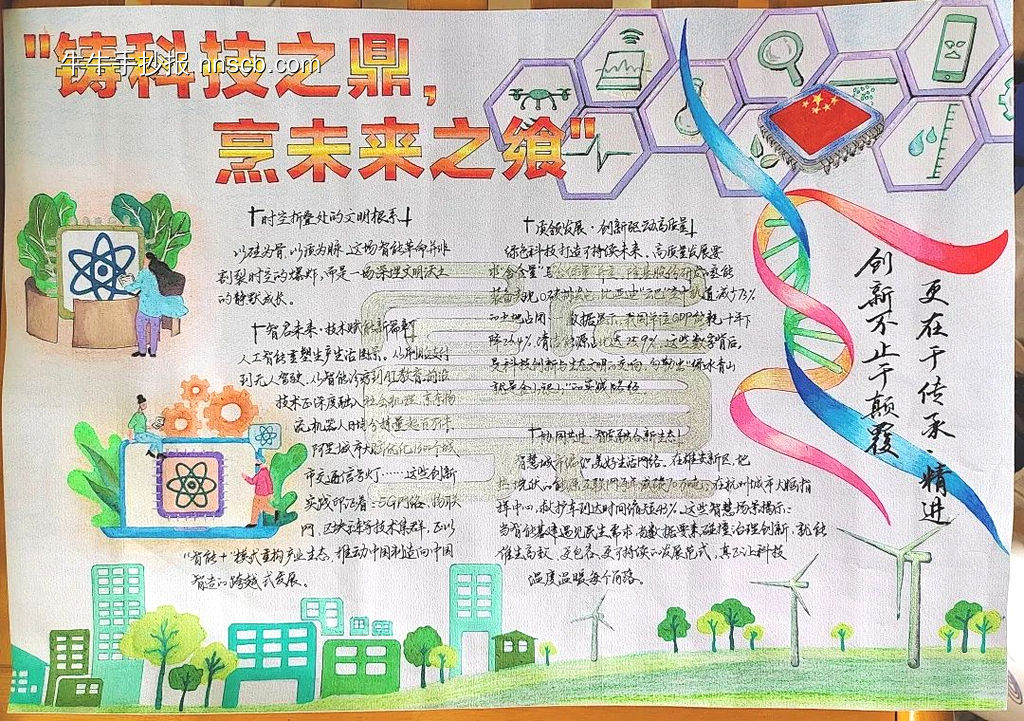 "铸科技之鼎，
烹未来之飨"
牛牛手抄报 nnscb.com
时空折叠处的文明根系
以硅为骨，以源为脉，这场智能革命并非
割裂时空的爆炸，而是一场深埋文明沃土
的静默成长。
智启未来·技术赋能新篇章
人工智能重塑生产生活图景。从刷脸支付
到无人驾驶，从智能诊疗到AI教育，前沿
技术正深度融入社会机理。京东物
流机器人日均分拣量超百万件
阿里城市大脑优化1300个城
市交通信号灯……这些创新
实践印证着：5G网络、物联
网、区块链等技术集群，正以
"智能+"模式重构产业生态，推动中国制造向中国
智造的跨越式发展。
质领发展·创新驱动高质量
绿色科技打造可持续未来。高质量发展要
求"含金量"与
的土地占用……数据显示，我国单位GDP能耗十年下
降26.4%，清洁能源占比达25.9%。这些数字背后，
是科技创新与生态文明的交响，勾勒出"绿水青山
就是金山银山"的实践路径。
协同共进·智慧融合新生态
智慧城市编织美好生活网络。在雄安新区，地
样中心，救护车到达时间缩短48%。这些智慧场景揭示：
当智能基建遇见民生需求，当数据要素碰撞治理创新，就能
催生高效、更包容、更可持续的发展范式，真正让科技
温度温暖每个角落。
创新不止于颠覆
更在于传承·精进